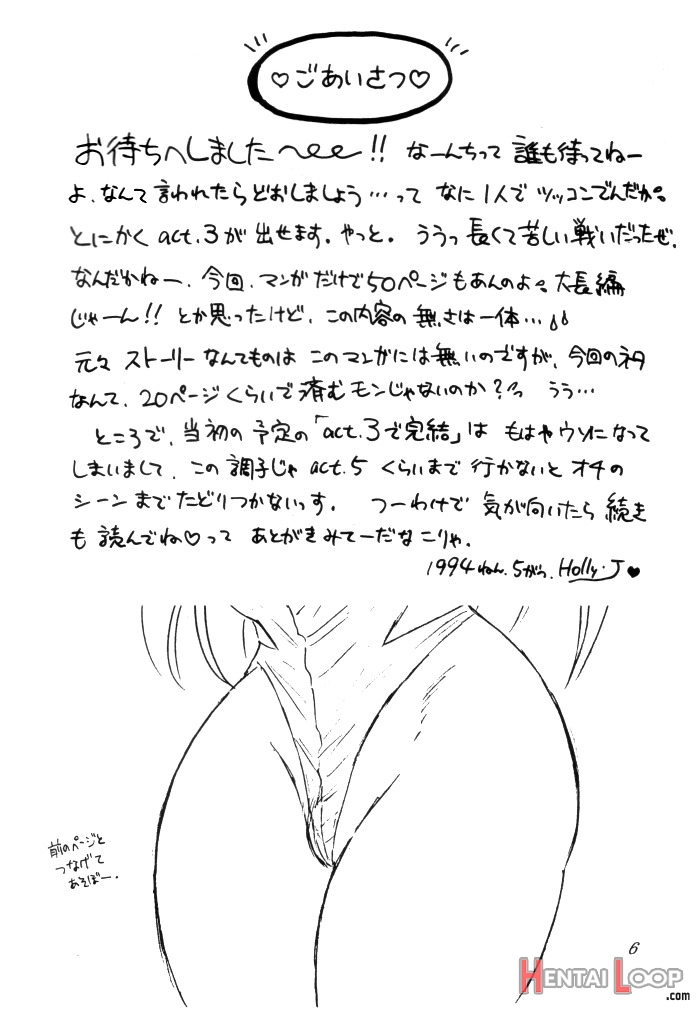 ♡ごあいさつ♡
お待ちへしました〜!! なーんちって 誰も待ってねー
よ、なんて言われたらどおしましょう…って なに1人で ツッコンでんだか。
とにかく act.3が 出せます。やっと。 ううっ長くて苦しい戦いだったぜ。
なんだかねー、今回、マンガだけで50ページもあんのよ。大長編
じゃーん!! とか思ったけど、この内容の無さは一体…
元々 ストーリーなんてものは このマンガには無いのですが、今回のネタ
なんて、20ページくらいで済むモンじゃないのか?っ うう…
ところで、当初の予定の「act.3で完結」は もはやウソになって
しまいまして、この調子じゃ act.5 くらいまで行かないと オチの
シーンまでたどりつかないっす。 つーわけで 気が向いたら 続き
も 読んでね♡って あとがきみてーだな こりゃ。
1994ねん.5がつ. Holly・J♥
前のページと
つなげて
あそぼー.
6
HENTAI LOOP
.com